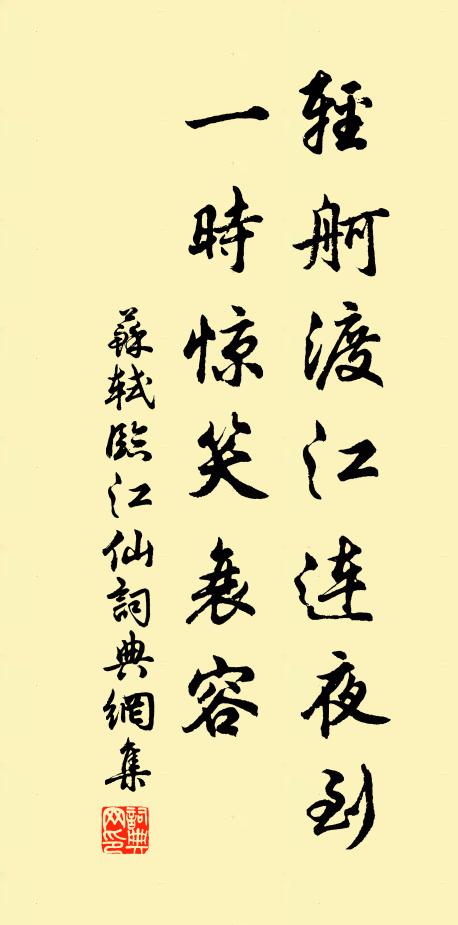 輕舸渡江連夜到
一時惊笑衰容
蘇軾臨江仙詞典網集
詞典网印